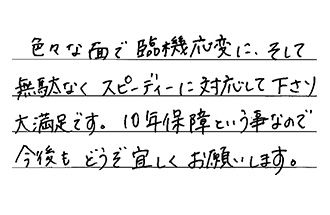 色々な面で臨機応変に、そして
無駄なくスピーディーに対応して下さり
大満足です。10年保障という事なので
今後もどうぞ宜しくお願いします。